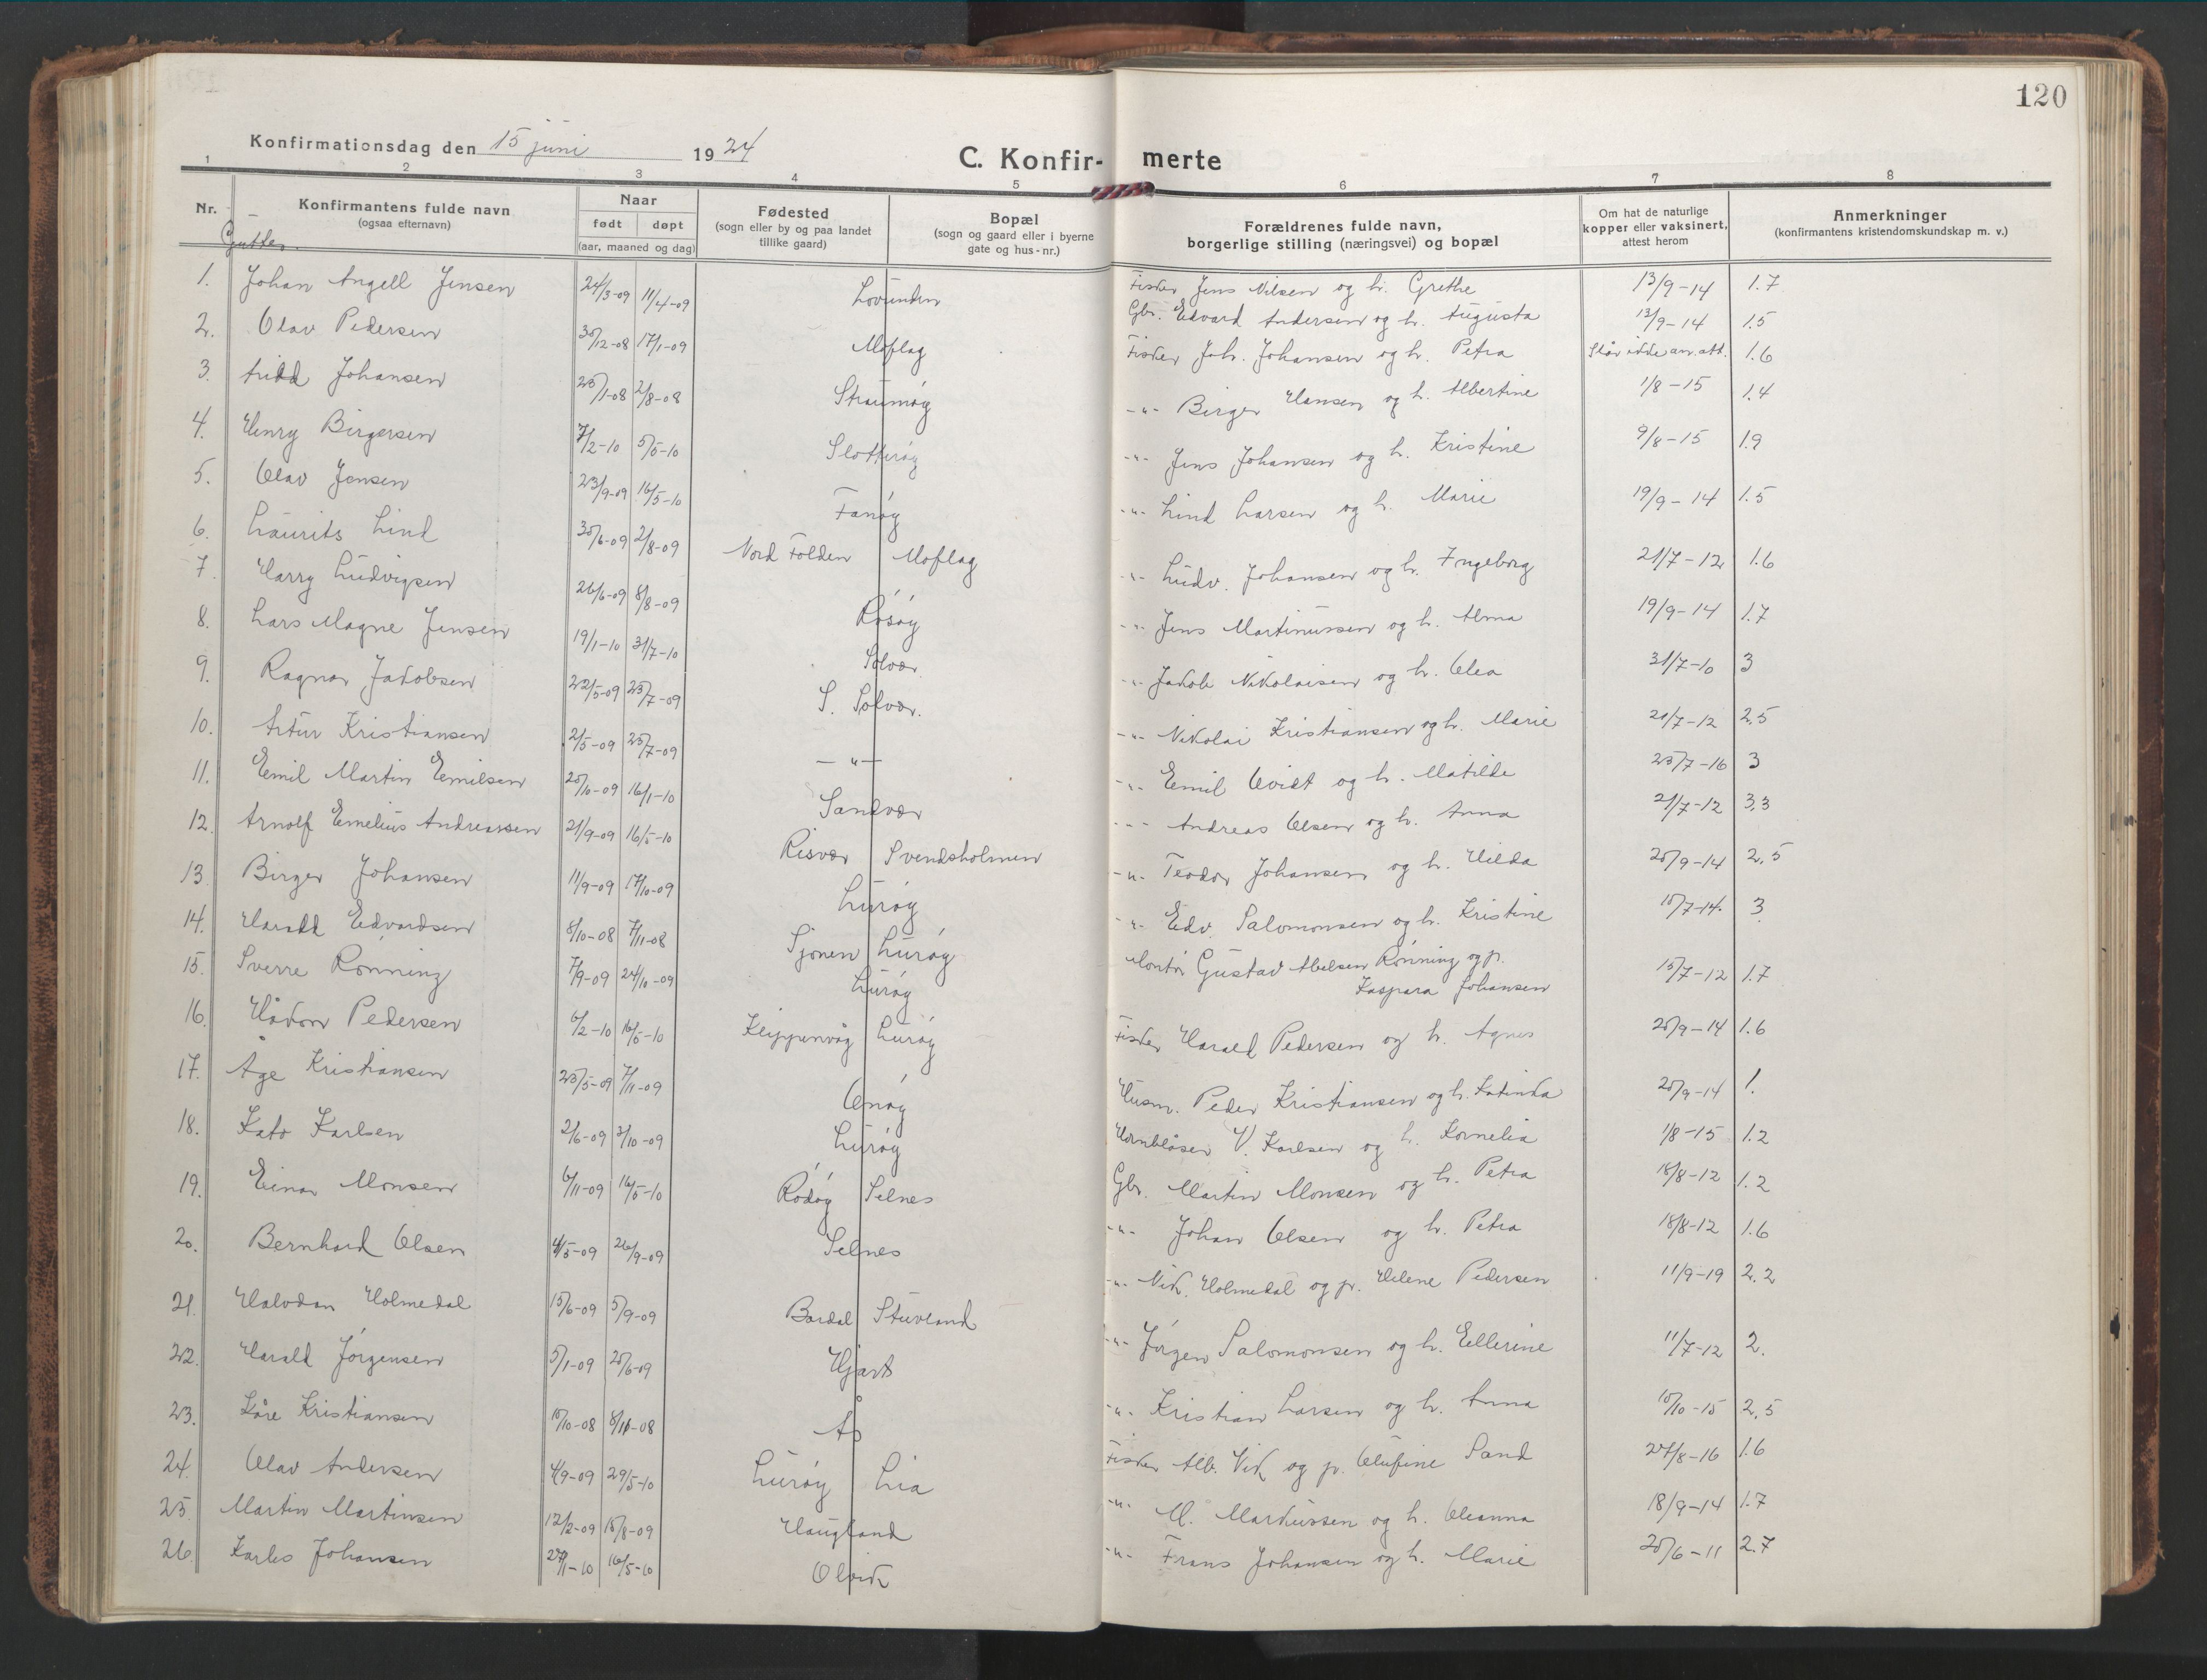 120
Konfirmationsdag den 15 juni 1924
C. Konfirmerte
1 2 3 4 5 6 7 8
Nr. Konfirmantens fulde navn (ogsaa efternavn) Naar født døpt (aar, maaned og dag) Fødested (sogn eller by og paa landet tillike gaard) Bopæl (sogn og gaard eller i byerne gate og hus-nr.) Forældrenes fulde navn, borgerlige stilling (næringsvei) og bopæl Om hat de naturlige kopper eller vaksinert, attest herom Anmerkninger (konfirmantens kristendomskundskap m. v.)
Gutter.
1. Johan Angell Jensen 24/3-09 11/4-09 Lovunden Fisker Jens Nilsen og h. Grethe 13/9-14 1.7
2. Olav Pedersen 30/12-08 17/1-09 Moflag Gbr. Edvard Andersen og h. Augusta 13/9-14 1.5
3. Johansen 25/1-08 2/8-08 Straumøy Fisker Joh. Johansen og h. Petra Står ikke an. att. 1.6
4. Henry Birgersen 7/2-10 5/5-10 Slotterøy -"- Birger Hansen og h. Albertine 1/8-15 1.4
5. Olav Jensen 23/9-09 16/5-10 Fanøy -"- Jens Johansen og h. Kristine 9/8-15 1.9
6. Laurits Lind 30/6-09 2/8-09 Nord Folden Moflag -"- Lind Larsen og h. Marie 19/9-14 1.5
7. Harry Ludvigsen 26/6-09 8/8-09 Røsøy -"- Ludv. Johansen og h. Ingeborg 21/7-12 1.6
8. Lars Magne Jensen 19/1-10 31/7-10 Solvær -"- Jens Martinussen og h. Alma 19/9-14 1.7
9. Ragnar Jakobsen 22/5-09 25/7-09 S. Solvær. -"- Jakob Nikolaisen og h. Olea 31/7-10 3
10. Artur Kristiansen 2/5-09 25/7-09 -"- -"- Nikolai Kristiansen og h. Marie 21/7-12 2,5
11. Emil Martin Emilsen 20/10-09 16/1-10 Sandvær -"- Emil Qvist og h. Matilde 25/7-16 3
12. Arnolf Emelius Andreassen 21/9-09 16/5-10 Risvær Svendsholmen -"- Andreas Olsen og h. Anna 21/7-12 3,3
13 Birger Johansen 11/9-09 17/10-09 Lurøy -"- Teodor Johansen og h. Hilda 20/9-14 2,5
14. Harald Edvardsen 8/10-08 7/11-08 Sjonen Lurøy -"- Edv. Salomonsen og h. Kristine 10/7-14. 3
15. Sverre Rønning 7/9-09 24/10-09 Lurøy Montør Gustav Abelsen Rønning og p. Kaspara Johansen 15/7-12 1.7
16. Håkon Pedersen 6/2-10 16/5-10 Kleppenvåg Lurøy Fisker Harald Pedersen og h. Agnes 20/9-14 1.6
17. Åge Kristiansen 25/5-09 7/11-09 Onøy Husm. Peder Kristiansen og h. Katinka 20/9-14 1.
18. Kato Karlsen 2/6-09 3/10-09 Lurøy Hornblåser V. Karlsen og h. Kornelia 1/8-15 1.2
19. Einar Monsen 6/11-09 16/5-10 Rødøy Selnes Gbr. Martin Monsen og h. Petra 18/8-12 1.2
20. Bernhard Olsen 4/5-09 26/9-09 Selnes -"- Johan Olsen og h. Petra 18/8-12 1.6
21. Halvdan Holmedal 15/6-09 5/9-09 Bardal Stuvland -"- Nik. Holmedal og p. Helene Pedersen 11/9-19 2.2
22. Harald Jörgensen 5/1-09 20/6-09 Hjart -"- Jörgen Salomonsen og h. Ellerine 11/7-12 2.
23. Kåre Kristiansen 10/10-08 8/11-08 Ås -"- Kristian Larsen og h. Anna 10/10-15 2,5
24. Olav Andersen 4/9-09 29/5-10 Lurøy Lia Fisker Alb. Vik og p. Olufine Sand 27/8-16 1.6
25. Martin Martinsen 12/2-09 15/8-09 Haugland -"- M. Markussen og h. Oleanna 18/9-14 1.7
26. Karlos Johansen 27/1-10 16/5-10 Olvik -"- Frans Johansen og h. Marie 20/6-11 2.7